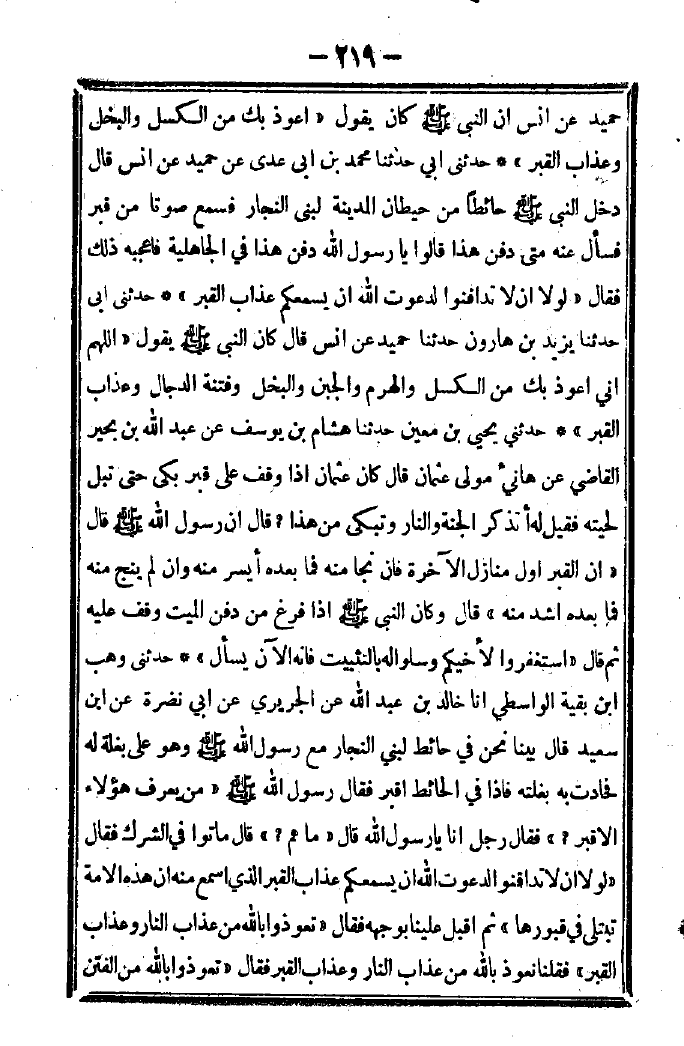 — ٢١٩ —
حميد عن انس ان النبي ﷺ كان يقول « اعوذ بك من الكسل والبخل
وعذاب القبر » * حدثنى ابي حدثنا محمد بن ابى عدى عن حميد عن انس قال
دخل النبي ﷺ حائطاً من حيطان المدينة لبنى النجار فسمع صوتا من قبر
فسأل عنه متى دفن هذا قالوا يا رسول الله دفن هذا في الجاهلية فاعجبه ذلك
فقال « لولا ان لا تدافنوا لدعوت الله ان يسمعكم عذاب القبر » * حدثنى ابى
حدثنا يزيد بن هارون حدثنا حميد عن انس قال كان النبي ﷺ يقول « اللهم
اني اعوذ بك من الكسل والهرم والجبن والبخل وفتنة الدجال وعذاب
القبر » * حدثني يحيى بن معين حدثنا هشام بن يوسف عن عبد الله بن بحير
القاضي عن هانىء مولى عثمان قال كان عثمان اذا وقف على قبر بكى حتى تبل
لحيته فقيل له أتذكر الجنة والنار وتبكى من هذا ? قال ان رسول الله ﷺ قال
« ان القبر اول منازل الآخرة فان نجا منه فما بعده أيسر منه وان لم ينج منه
فما بعده اشد منه » قال وكان النبي ﷺ اذا فرغ من دفن الميت وقف عليه
ثم قال « استغفروا لأخيكم وسلوا له بالتثبيت فانه الآن يسأل » * حدثنى وهب
ابن بقية الواسطي انا خالد بن عبد الله عن الجريري عن ابي نضرة عن ابن
سعيد قال بينا نحن في حائط لبني النجار مع رسول الله ﷺ وهو على بغلة له
فحادت به بغلته فاذا في الحائط اقبر فقال رسول الله ﷺ « من يعرف هؤلاء
الاقبر ? » فقال رجل انا يا رسول الله قال « ما هم ? » قال ماتوا في الشرك فقال
« لولا ان لا تدافنوا لدعوت الله ان يسمعكم عذاب القبر الذي اسمع منه ان هذه الامة
تبتلى في قبورها » ثم اقبل علينا بوجهه فقال « تعوذوا بالله من عذاب النار وعذاب
القبر » فقلنا نعوذ بالله من عذاب النار وعذاب القبر فقال « تعوذوا بالله من الفتن